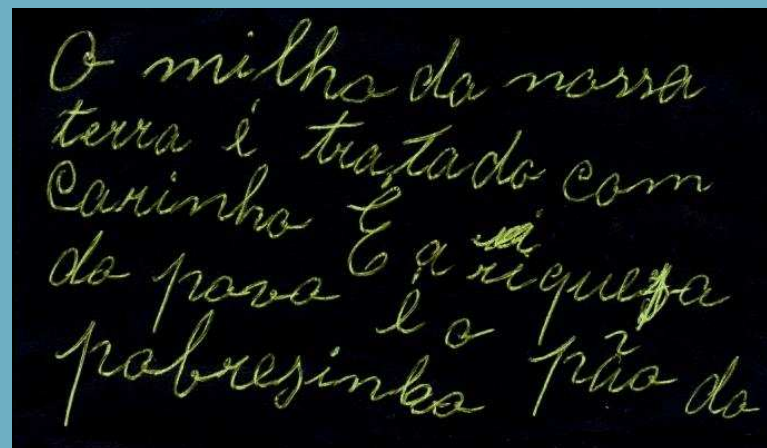 O milho da nossa
terra é tratado com
Carinho É a riqueza
do povo é o pão do
pobresinho